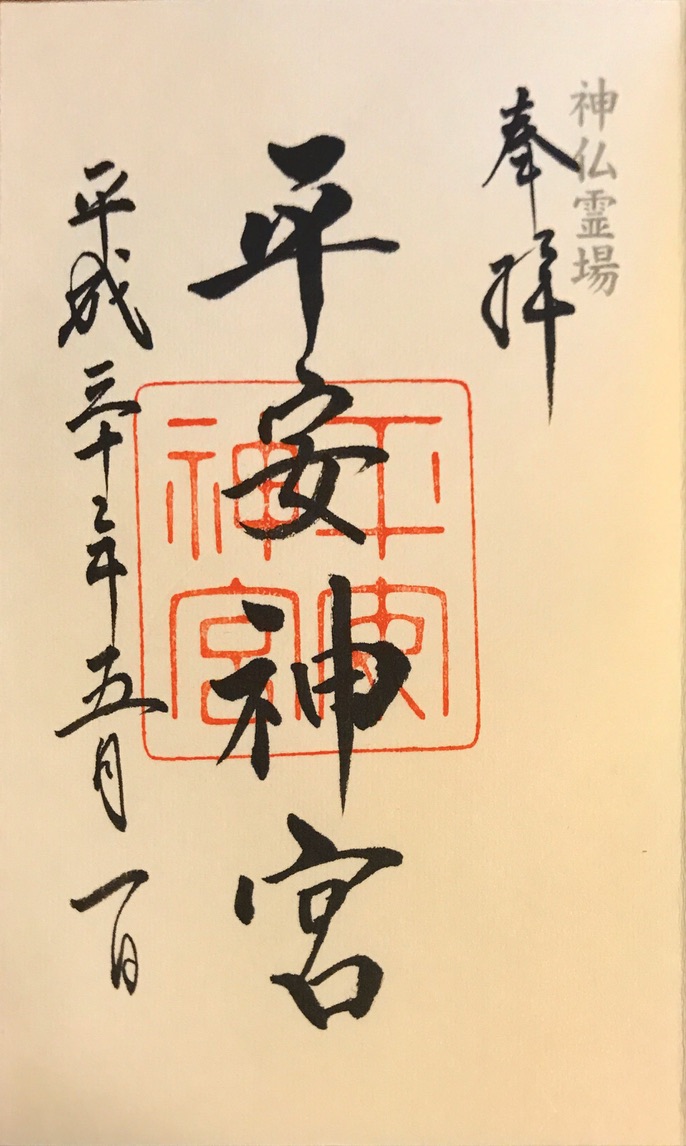 神仏霊場
奉拝
平安神宮
平安
神宮
平成三十年五月一日